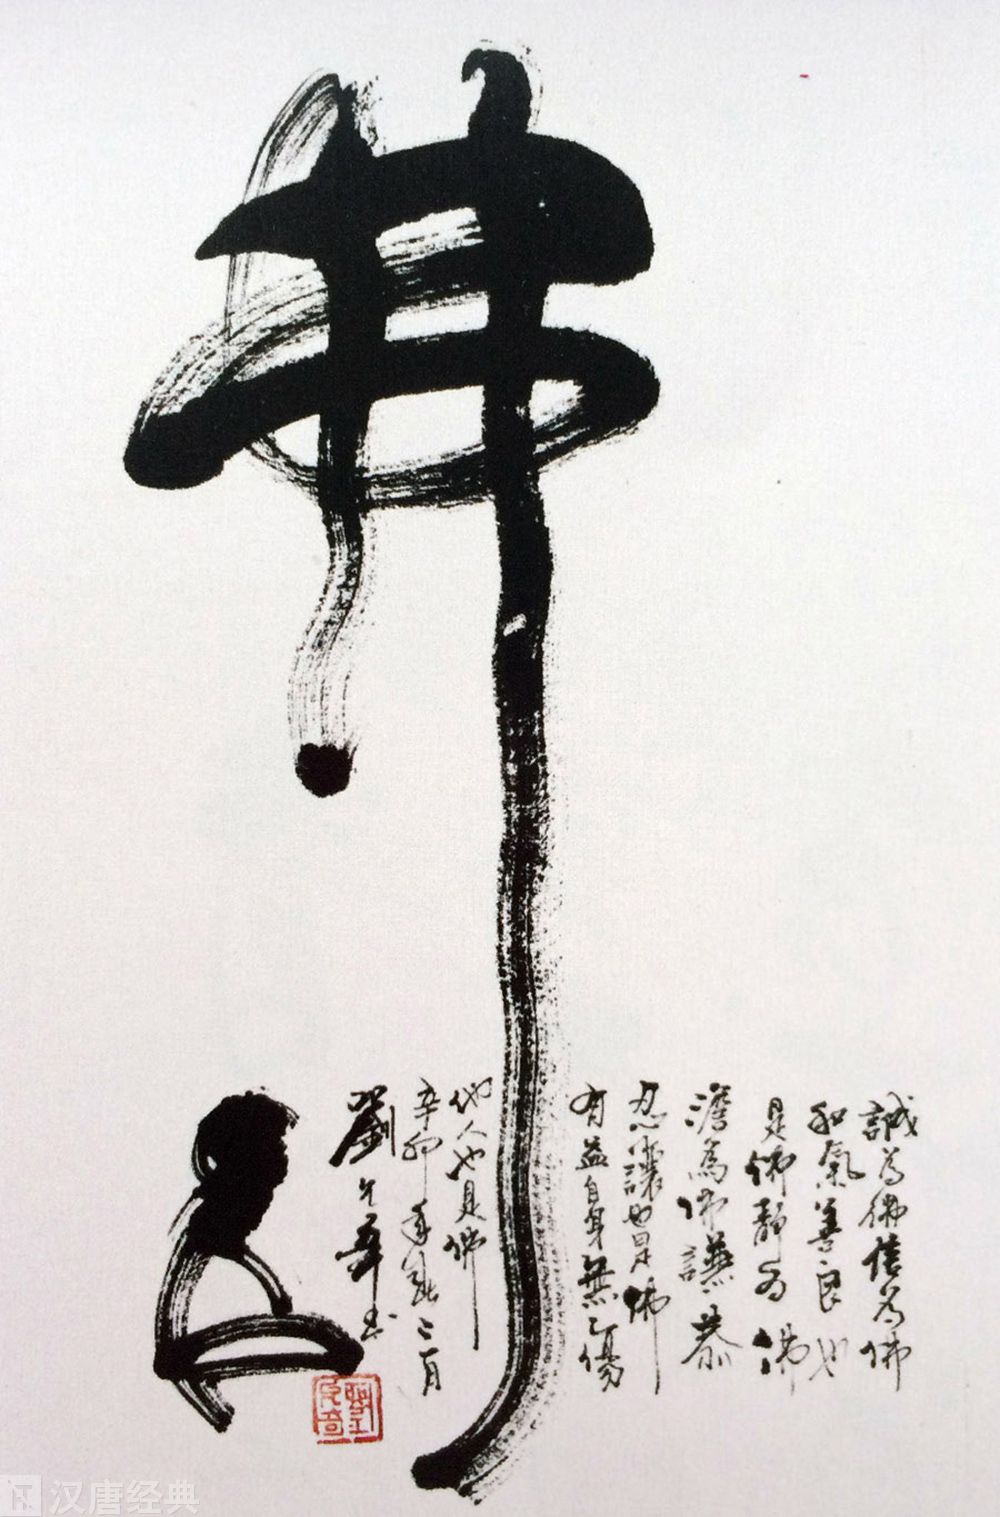 佛
誠為佛信為佛
和氣善良也
是佛靜為佛
澹為佛謙恭
忍讓也是佛
有益自身無傷
他人也是佛
辛卯年二月
劉書
汉唐经典